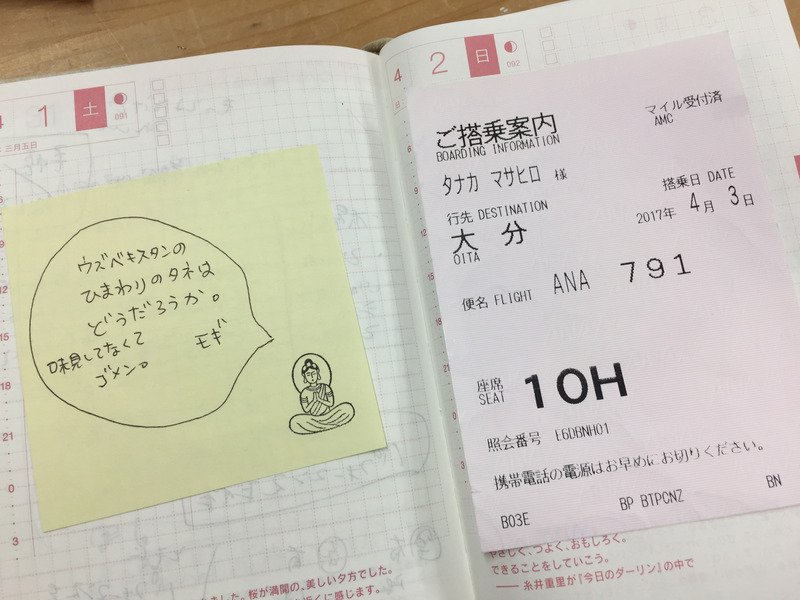 4
1
土
091
三月五日
ウズベキスタンの
ひまわりのタネは
どうだろうか。
味見してなくて
モギ
ゴメン。
15
18
21
0
3
ました。桜が満開の、美しい夕方でした。
近くに感じます。
4
2
日
092
6
9
12
15
18
21
0
3
ご搭乗案内
BOARDING INFORMATION
マイル受付済
AMC
タナカ マサヒロ 様
搭乗日 DATE
行先 DESTINATION
2017年 4月 3日
大 分
OITA
便名 FLIGHT ANA 791
座席
SEAT 10H
照会番号 E6DBNH01
携帯電話の電源はお早めにお切りください。
B03E BP BTPCNZ BN
やさしく、つよく、おもしろく。
できることをしていこう。
── 糸井重里が『今日のダーリン』の中で